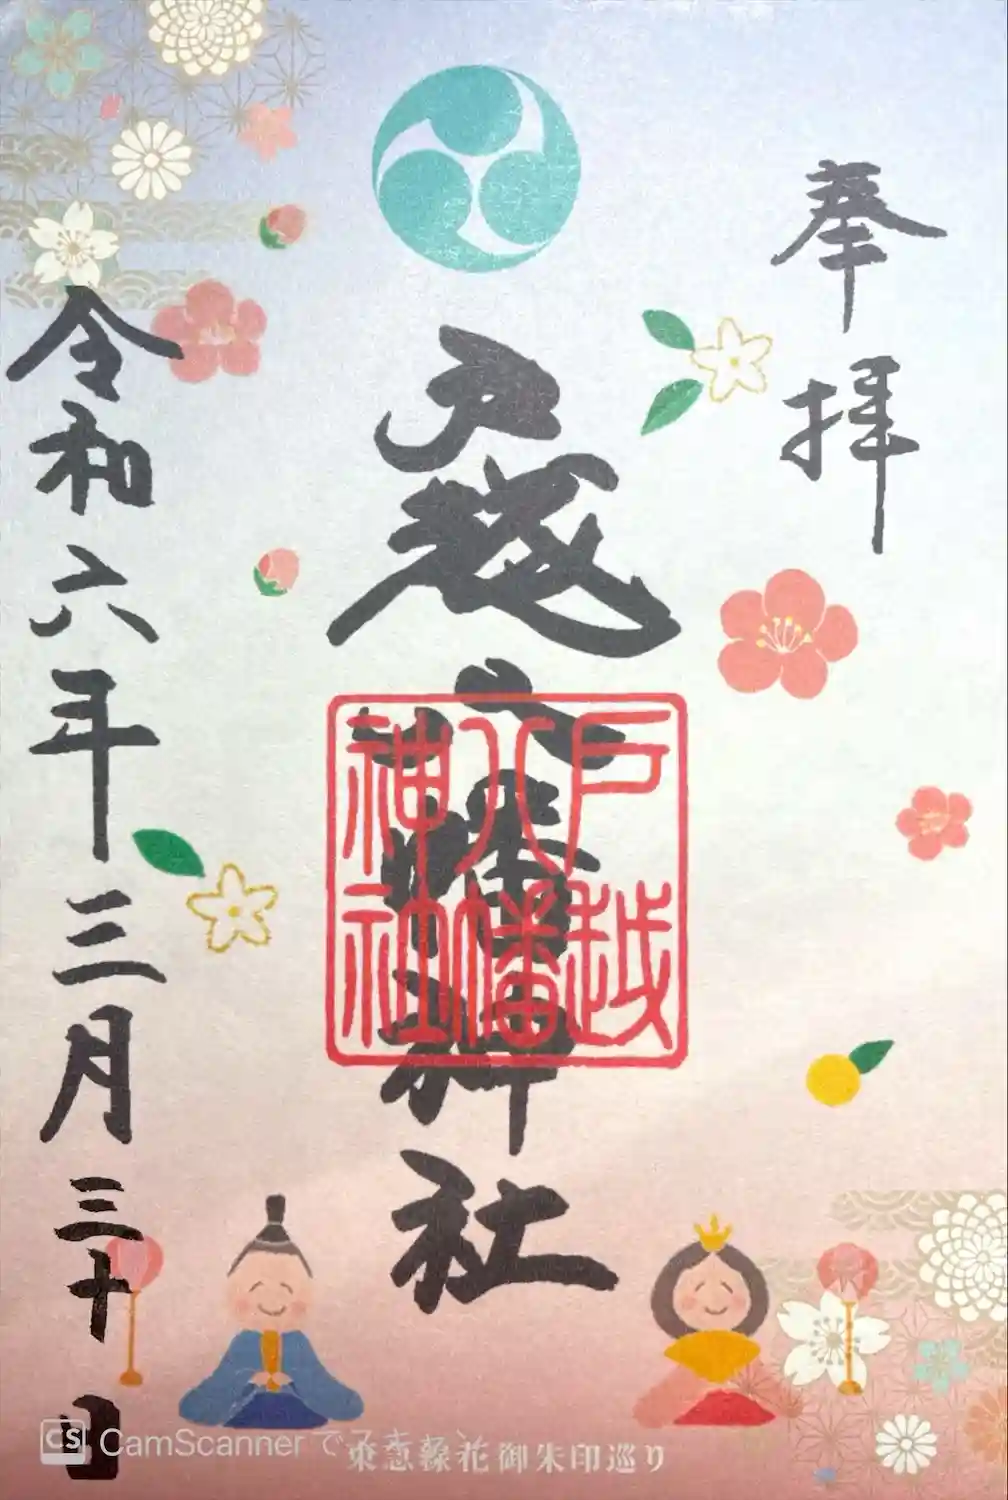 奉拝
戸越八幡神社
戸越
八幡
神社
令和六年三月三十日
東急線花御朱印巡り
CS CamScanner でスキャン